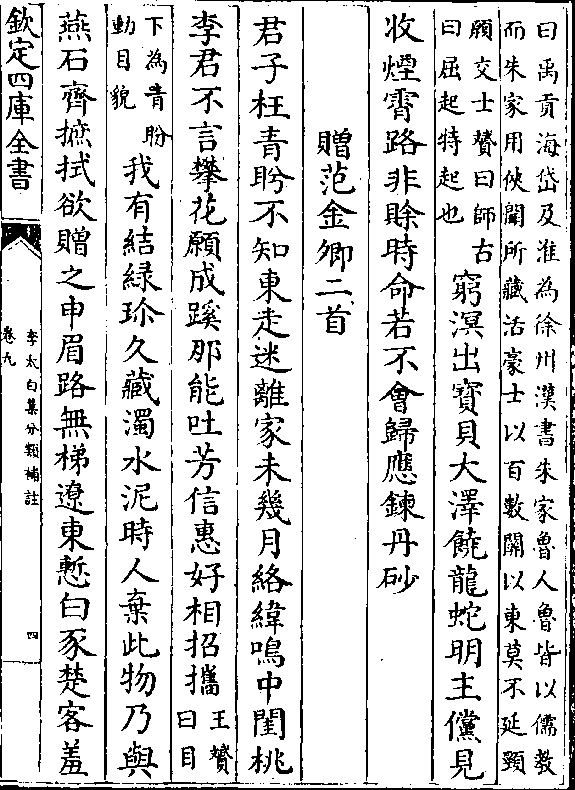 曰禹貢海岱及淮為徐州漢書朱家魯人魯皆以儒教
而朱家用俠聞所藏活豪士以百數關以東莫不延頸
願交士贇曰師古
曰屈起特起也
窮溟出寳貝大澤饒龍蛇明主儻見
收煙霄路非賒時命若不㑹歸應鍊丹砂
贈范金卿二首
君子枉青盻不知東走迷離家未幾月絡緯鳴中閨桃
李君不言攀花願成蹊那能吐芳信惠好相招攜
王贇
曰目
下為青盼
動目貌
我有結緑珍久藏濁水泥時人棄此物乃與
燕石齊摭拭欲贈之申眉路無梯遼東慙白豕楚客羞
欽定四庫全書
李太白集分類補註
卷九
四